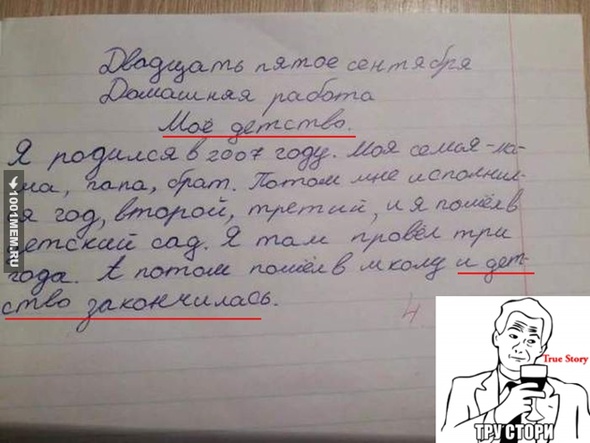 Двадцать пятое сентября
Домашняя работа
Моё детство.
Я родился в 2007 году. Моя семья - ма-
ма, папа, брат. Потом мне исполнил-
ся год, второй, третий, и я пошёл в
детский сад. Я там провёл три
года. А потом пошёл в школу и дет-
ство закончилась.
4
1001MEM.RU
True Story
ТРУ СТОРИ